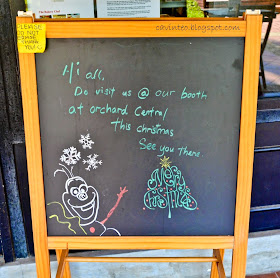 PLEASE
DO NOT
THANK
YOU!
cavinteo.blogspot.com
Hi all,
Do visit us @ our booth
at orchard Central
This christmas
See you there
Merry
Christmas